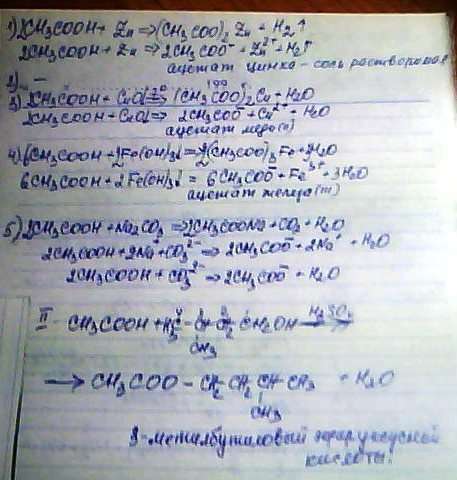 1) 2CH₃COOH + Zn ⇒ (CH₃COO)₂ Zn + H₂↑
2CH₃COOH + Zn ⇒ 2CH₃COO⁻ + Zn²⁺ + H₂↑
ацетат цинка - соль растворимая
2) —
3) 2CH₃COOH + CuO ⇒ (CH₃COO)₂Cu + H₂O
2CH₃COOH + CuO ⇒ 2CH₃COO⁻ + Cu²⁺ + H₂O
ацетат меди (II)
4) 6CH₃COOH + 2Fe(OH)₃↓ = 2(CH₃COO)₃Fe + H₂O
6CH₃COOH + 2Fe(OH)₃↓ = 6CH₃COO⁻ + Fe³⁺ + 3H₂O
ацетат железа (III)
5) 2CH₃COOH + Na₂CO₃ ⇒ 2CH₃COONa + CO₂ + H₂O
2CH₃COOH + 2Na⁺ + CO₃²⁻ ⇒ 2CH₃COO⁻ + 2Na⁺ + H₂O
2CH₃COOH + CO₃²⁻ ⇒ 2CH₃COO⁻ + H₂O
II CH₃COOH + H₃C - CH - CH₂ - CH₂OH H₂SO₄ ⇒
CH₃
→ CH₃COO - CH₂ - CH₂ - CH - CH₃ + H₂O
CH₃
3-метилбутиловый эфир уксусной
кислоты.